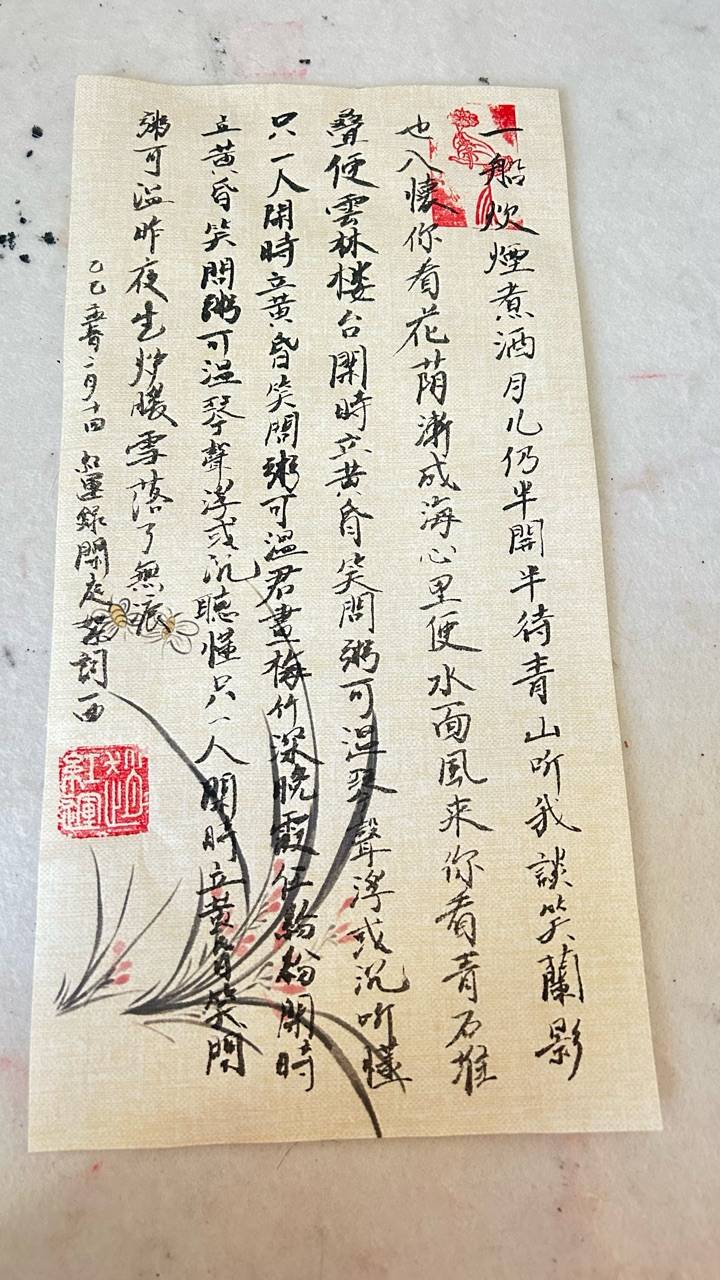 一船炊煙煮酒月儿仍半開半待青山听我談笑蘭影
也入懷你看花荫漸成海心里便水面風来你看青石堆
疊便雲林楼台閑時立黄昏笑問粥可温琴聲浮或沉听懂
只一人閑時立黄昏笑問粥可温君畫梅竹深晚霞任紛紛閑時
立黄昏笑問粥可温琴聲浮或沉聽懂只一人閑時立黄昏笑問
粥可温昨夜生炉暖雪落了無痕
乙巳春二月十四 紅運録閑庭絮詞一曲
紅運